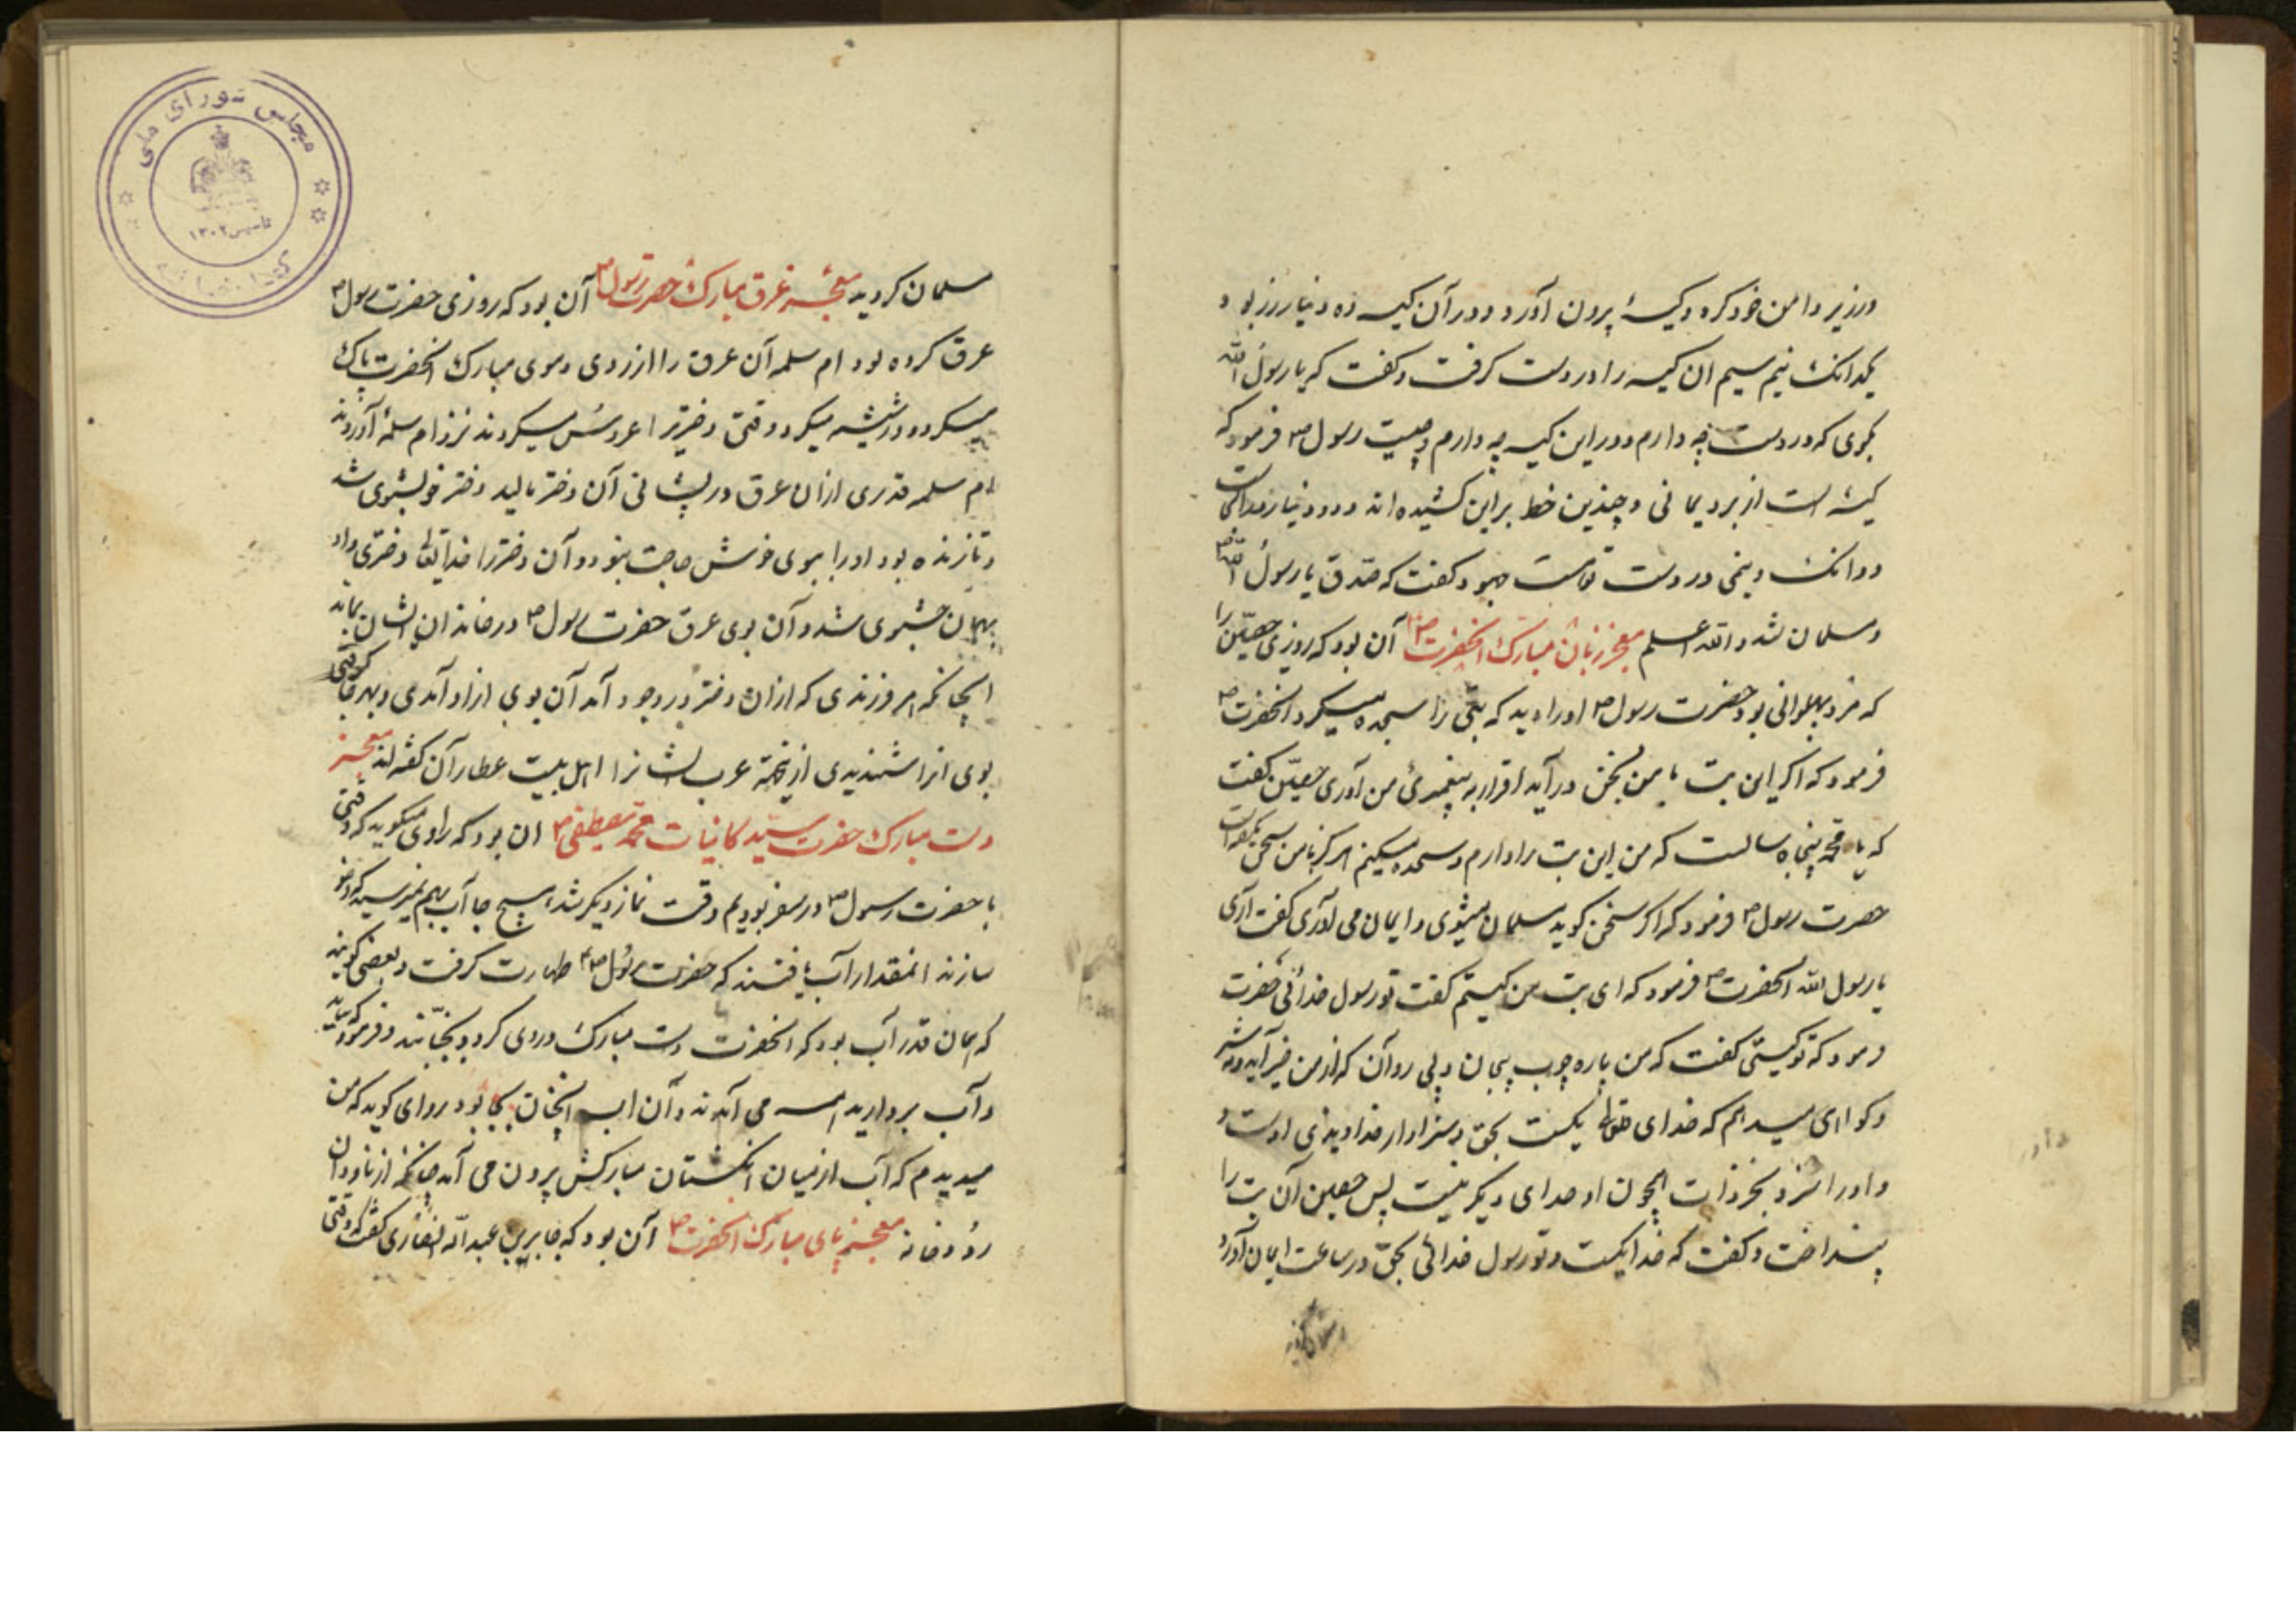 ودر زیر دامن خود کرد و کیسهٔ بیرون آورد و در آن کیسه ده دینار زر بود و
یکدانک نیم سیم ان کیسه را در دست کرفت و کفت که یا رسول الله
بکوی که در دست چه دارم و در این کیسه چه دارم و چیست رسول ص فرمود که
کیسه است از برد یمانی و چندین خط بر این کشیده اند و ده دینار زر است
و دانک و نیمی در دست تو است جهود کفت که صدق یا رسول الله
و مسلمان شد والله اعلم معجز زبان مبارک انحضرت ص آن بود که روزی حصین را
که مرد پهلوانی بود حضرت رسول ص او را دید که بتی را سجده میکرد انحضرت ص
فرمود که اکر این بت با من بسخن در آید اقرار به پیغمبری من آوری حصین کفت
که یا محمد پنجاه سالست که من این بت را دارم و سجده میکنم هرکز با من سخن نکفته است
حضرت رسول ص فرمود که اکر سخن کوید مسلمان میشوی و ایمان می آوری کفت آری
یا رسول الله انحضرت ص فرمود که ای بت من کیستم کفت تو رسول خدائی حضرت
فرمود که تو کیستی کفت که من پاره چوب بیجان و بی روان که از من خیر آید و نه شر
و کواهی میدهم که خدای تعالی یکیست بحق و سزاوار خداوندی اوست و
و او را سزد بجز ذات بیچون او خدای دیکر نیست پس حصین آن بت را
بینداخت و کفت که خدا یکیست و تو رسول خدائی بحق در ساعت ایمان آورد
مسلمان کردید معجزهٔ عرق مبارک حضرت رسول ص آن بود که روزی حضرت رسول ص
عرق کرده بود ام سلمه آن عرق را از روی و موی مبارک انحضرت پاک
میکرد و در شیشه میکرد وقتی دختریرا عروس میکردند نزد ام سلمه آوردند
ام سلمه قدری ازان عرق در پیشانی آن دختر مالید دختر خوشبوی شد
و تا زنده بود او را ببوی خوش حاجت نبود و آن دختر را خدایتعالی دختری داد
بهمان خشبوی شد و آن بوی عرق حضرت رسول ص در خاندان ایشان بماند
انچنانکه هر فرزندی که ازان دختر در وجود آمد آن بوی از او آمدی و هر کس
بوی انرا شنیدی از عرب ایشانرا اهل بیت عطاران کفته اند معجز
دست مبارک حضرت سید کاینات محمد مصطفی ص ان بود که راوی میکوید که وقتی
با حضرت رسول ص در سفر بودیم وقت نماز دیکر شد هیچ جا آب بهم نمیرسید که وضو
سازند انمقدار آب یافتند که حضرت رسول ص طهارت کرفت و بعضی کویند
که همان قدر آب بود که انحضرت دست مبارک در وی کرد و بجنبانید و فرمود که بیایید
و آب بردارید همه می آمدند و آن اب انچنان بجا بود و راوی کوید که من
میدیدم که آب از میان انکشتان مبارکش بیرون می آمد چنانکه از ناودان
رودخانه معجز پای مبارک انحضرت ص آن بود که جابر بن عبدالله انصاری کفت که وقتی
مجلس شورای ملی
تاسیس ۱۳۰۲
کتابخانه